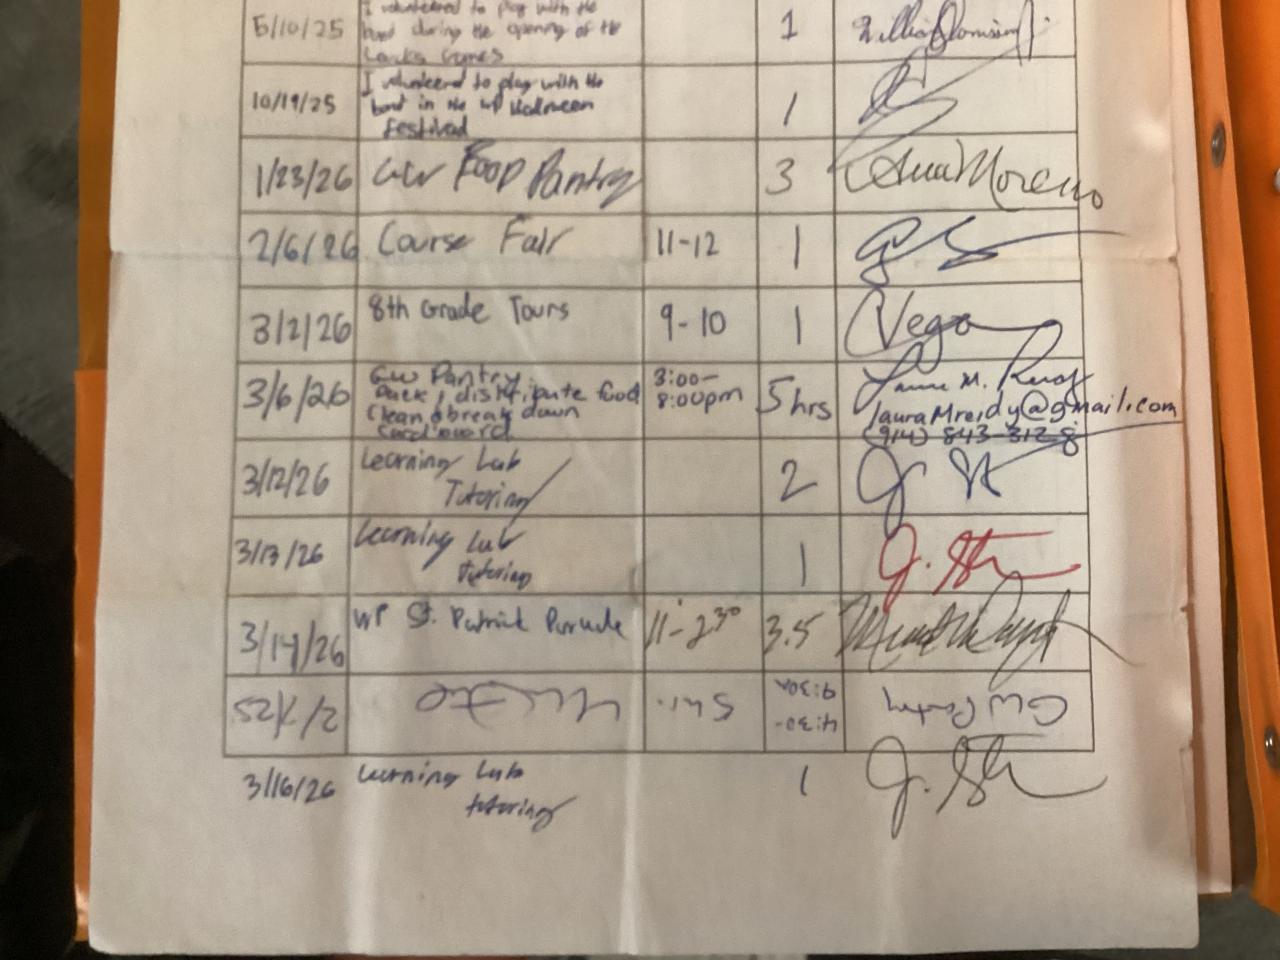 5/10/25 I volunteered to play with the
band during the opening of the
Games 1
10/19/25 I volunteered to play with the
band in the WP Halloween
Festival 1
1/23/26 GW Food Pantry 3 Ana Moreno
2/6/26 Course Fair 11-12 1
3/2/26 8th Grade Tours 9-10 1 CVega
3/6/26 GW Pantry 3:00-
Pack, distribute food 8:00pm 5 hrs
Clean & break down lauraMreidy@gmail.com
Cardboard (914) 843-3128
3/12/26 Learning Lab 2
Tutoring
3/13/26 Learning Lab 1 J.
tutoring
3/14/26 WP St. Patrick Parade 11-2:30 3.5
GW Pantry 4:30-
5 hr.
3/16/26 Learning Lab 1 J.
tutoring